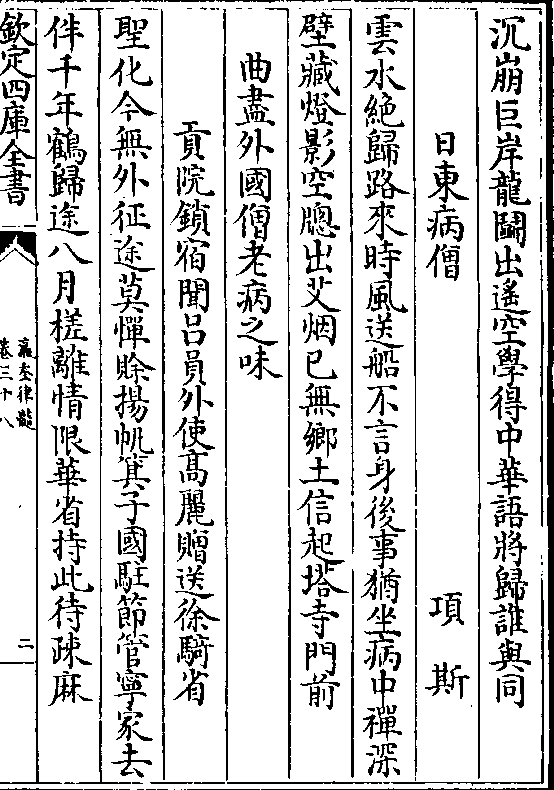 沉崩巨岸龍鬬出遙空學得中華語將歸誰與同
日東病僧 項斯
雲水絶歸路來時風送船不言身後事猶坐病中禪深
壁藏燈影空牕出艾烟已無鄉土信起塔寺門前
曲盡外國僧老病之味
貢院鎖宿聞吕員外使髙麗贈送徐騎省
聖化今無外征途莫憚賖揚帆箕子國駐節管寧家去
伴千年鶴歸途八月槎離情限華省持此待疎麻
欽定四庫全書
瀛奎律髓
卷三十八
二